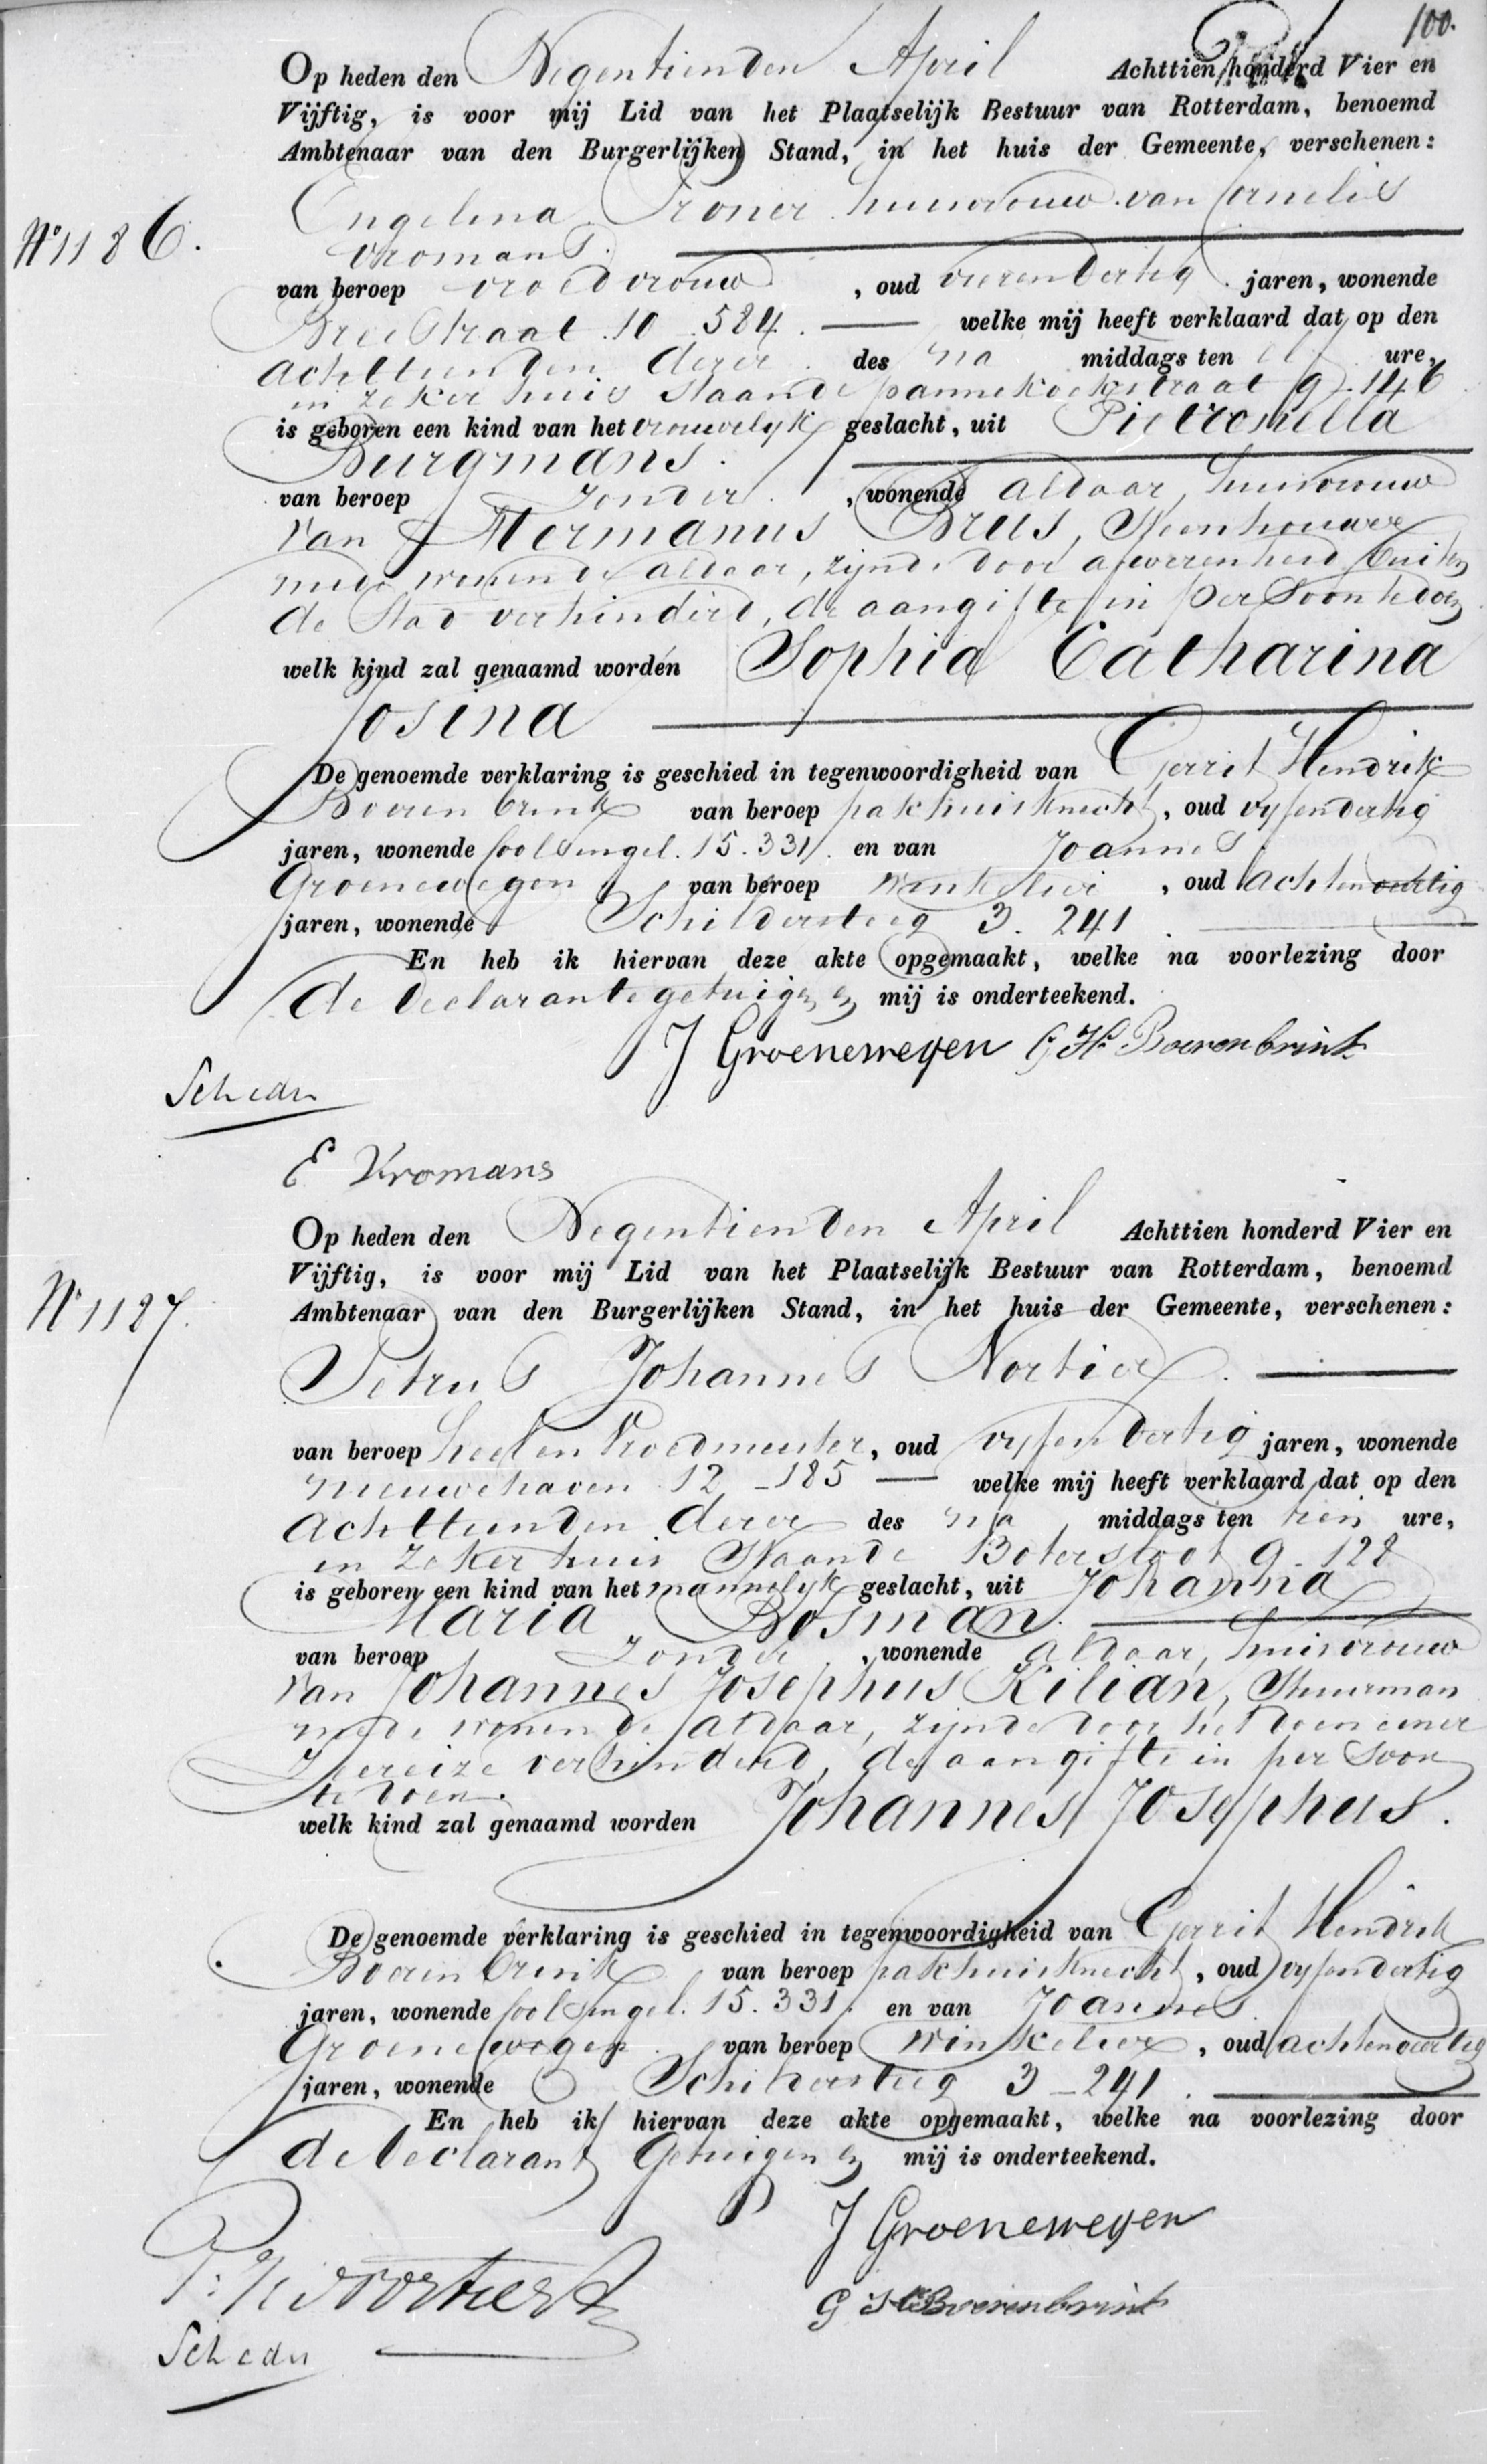 100.
Op heden den Negentienden April Achttien honderd Vier en
Vijftig, is voor mij Lid van het Plaatselijk Bestuur van Rotterdam, benoemd
Ambtenaar van den Burgerlijken Stand, in het huis der Gemeente, verschenen:
Engelina Troner huisvrouw van Cornelis
No 1186.
Vromans.
van beroep vroedvrouw, oud vierendertig jaren, wonende
Breestraat 10 584. welke mij heeft verklaard dat op den
achttienden dezer des na middags ten elf ure,
in zeker huis staande pannekoekstraat 9-146
is geboren een kind van het vrouwelyk geslacht, uit Pietronella
Burgmans.
van beroep zonder, wonende aldaar, huisvrouw
van Hermanus Brus, Steenhouwer
mede wonende aldaar, zynde door afwezenheid buiten
de Stad verhinderd, de aangifte in persoon te doen
welk kind zal genaamd worden Sophia Catharina
Josina
De genoemde verklaring is geschied in tegenwoordigheid van Gerrit Hendrik
Boerenbrink van beroep pakhuisknecht, oud vyfendertig
jaren, wonende Coolsingel. 15.331. en van Joannes
Groenewegen van beroep winkelier, oud achtenveertig
jaren, wonende Schildersteeg 3. 241.
En heb ik hiervan deze akte opgemaakt, welke na voorlezing door
de declarante getuigen en mij is onderteekend.
J Groenewegen G H Boerenbrink
E Vromans
Op heden den Negentienden April Achttien honderd Vier en
Vijftig, is voor mij Lid van het Plaatselijk Bestuur van Rotterdam, benoemd
No 1187.
Ambtenaar van den Burgerlijken Stand, in het huis der Gemeente, verschenen:
Petrus Johannes Nortier.
van beroep heel en Vroedmeester, oud vyfendertig jaren, wonende
nieuwehaven 12-185 welke mij heeft verklaard dat op den
achttienden dezer des na middags ten tien ure,
in zeker huis staande Botersloot 9-128
is geboren een kind van het mannelyk geslacht, uit Johanna
Maria Bosman.
van beroep zonder, wonende aldaar, huisvrouw
van Johannes Josephus Kilian, Stuurman
mede wonende aldaar, zynde door het doen eener
Zeereize verhinderd, de aangifte in persoon
te doen.
welk kind zal genaamd worden Johannes Josephus.
De genoemde verklaring is geschied in tegenwoordigheid van Gerrit Hendrik
Boerenbrink van beroep pakhuisknecht, oud vyfendertig
jaren, wonende Coolsingel. 15.331. en van Joannes
Groenewegen van beroep winkelier, oud achtenveertig
jaren, wonende Schildersteeg 3-241.
En heb ik hiervan deze akte opgemaakt, welke na voorlezing door
de declarant getuigen en mij is onderteekend.
J Groenewegen
G H Boerenbrink